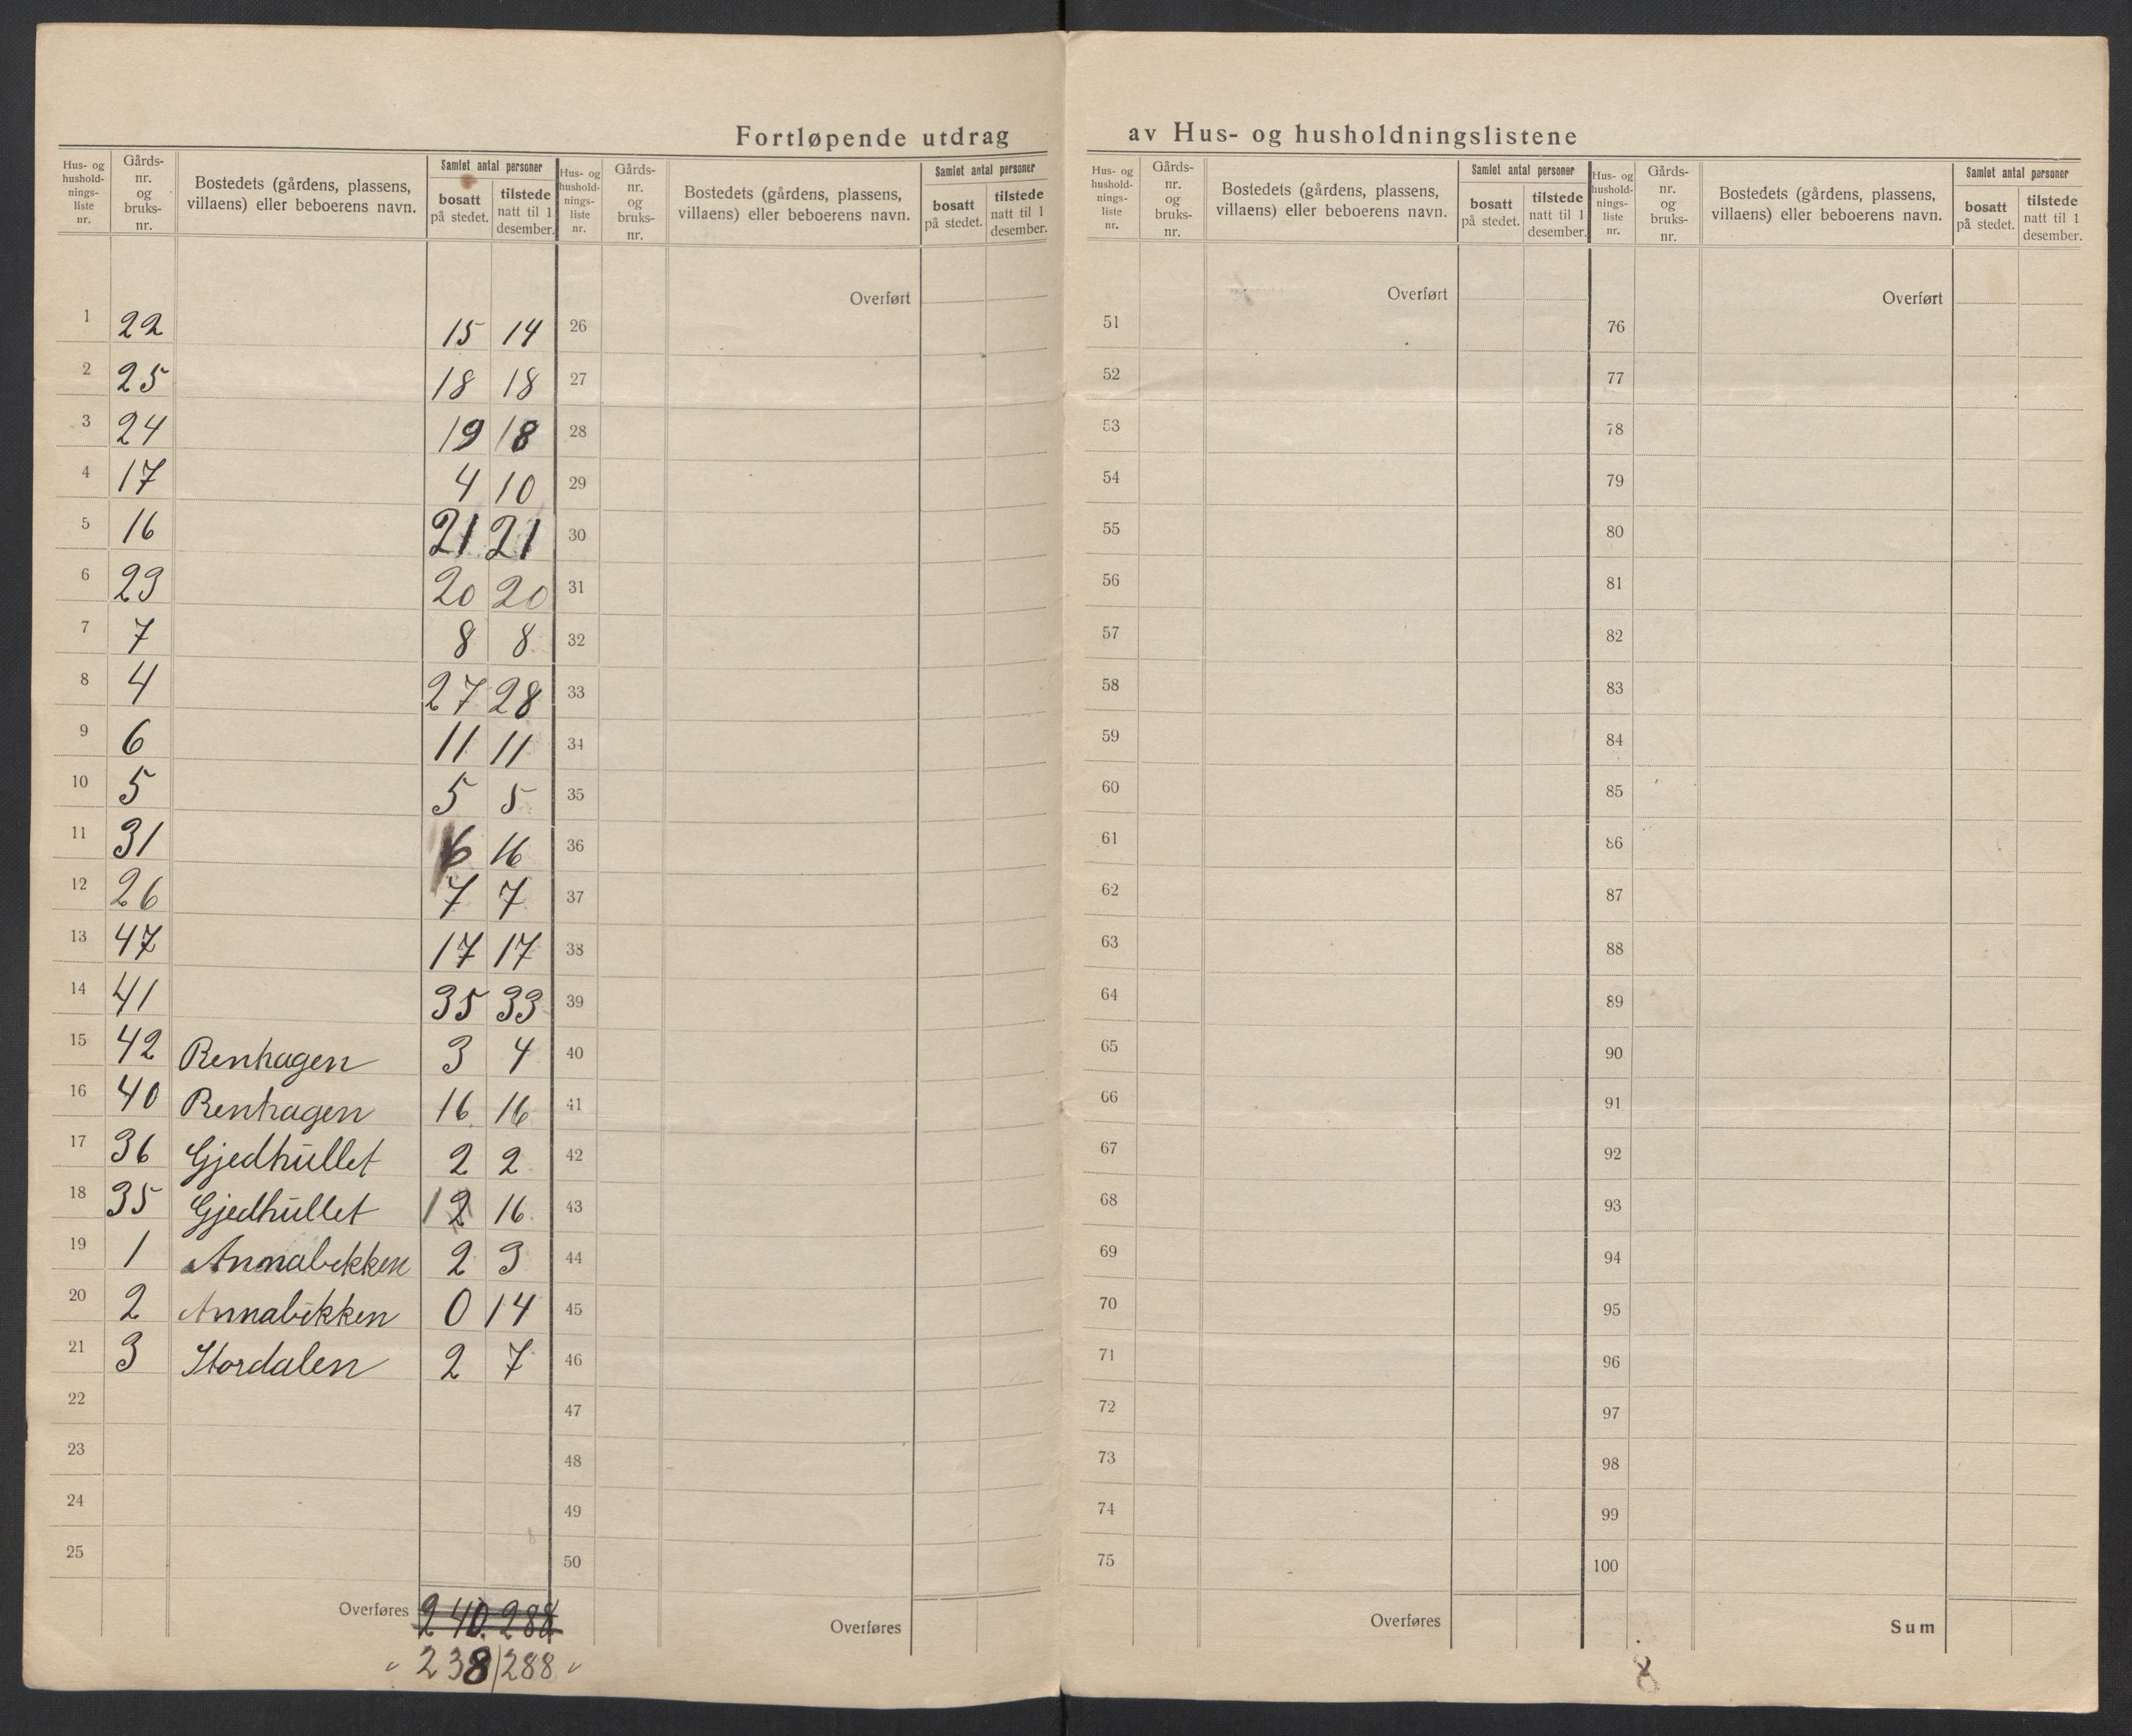 Fortløpende utdrag av Hus- og husholdningslistene
Hus- og hushold-nings-liste nr. Gårds-nr. og bruks-nr. Bostedets (gårdens, plassens, villaens) eller beboerens navn. Samlet antal personer bosatt på stedet. tilstede natt til 1 desember.
Hus- og hushold-nings-liste nr. Gårds-nr. og bruks-nr. Bostedets (gårdens, plassens, villaens) eller beboerens navn. Samlet antal personer bosatt på stedet. tilstede natt til 1 desember.
Hus- og hushold-nings-liste nr. Gårds-nr. og bruks-nr. Bostedets (gårdens, plassens, villaens) eller beboerens navn. Samlet antal personer bosatt på stedet. tilstede natt til 1 desember.
Hus- og hushold-nings-liste nr. Gårds-nr. og bruks-nr. Bostedets (gårdens, plassens, villaens) eller beboerens navn. Samlet antal personer bosatt på stedet. tilstede natt til 1 desember.
Overført Overført Overført
1 22 15 14 26 51 76
2 25 18 18 27 52 77
3 24 19 18 28 53 78
4 17 4 10 29 54 79
5 16 21 21 30 55 80
6 23 20 20 31 56 81
7 7 8 8 32 57 82
8 4 27 28 33 58 83
9 6 11 11 34 59 84
10 5 5 5 35 60 85
11 31 6 16 36 61 86
12 26 7 7 37 62 87
13 47 17 17 38 63 88
14 41 35 33 39 64 89
15 42 Renhagen 3 4 40 65 90
16 40 Renhagen 16 16 41 66 91
17 36 Gjedhullet 2 2 42 67 92
18 35 Gjedhullet 16 43 68 93
19 1 Annabekken 2 3 44 69 94
20 2 Annabekken 0 14 45 70 95
21 3 Stordalen 2 7 46 71 96
22 47 72 97
23 48 73 98
24 49 74 99
25 50 75 100
Overføres 240 288 Overføres Overføres Sum
238 / 288
8